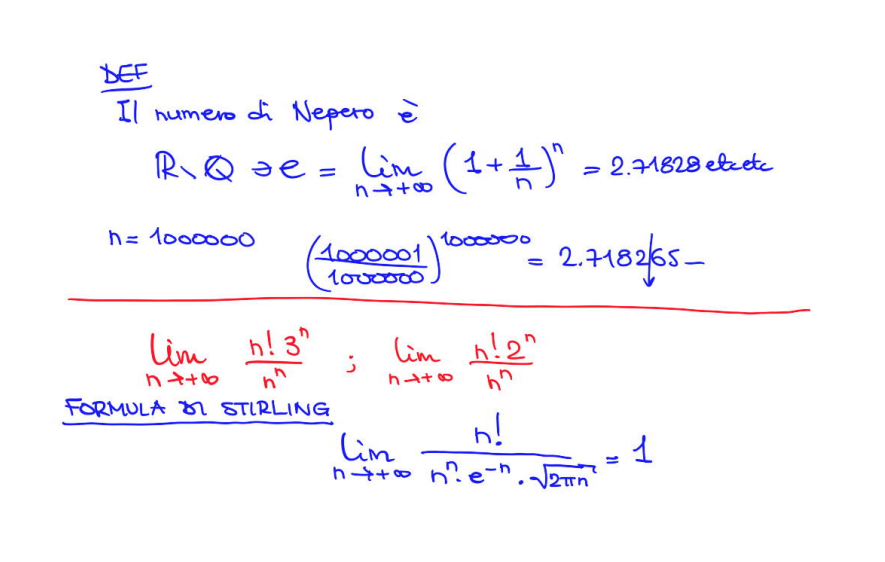 DEF
Il numero di Nepero è
ℝ∖ℚ ∋ e = lim n→+∞ (1 + 1/n)^n = 2.71828 etc etc
n = 1000000 (1000001/1000000)^1000000 = 2.718265—
lim n→+∞ n! 3^n / n^n ; lim n→+∞ n! 2^n / n^n
FORMULA DI STIRLING
lim n→+∞ n! / (n^n · e^-n · √2πn) = 1